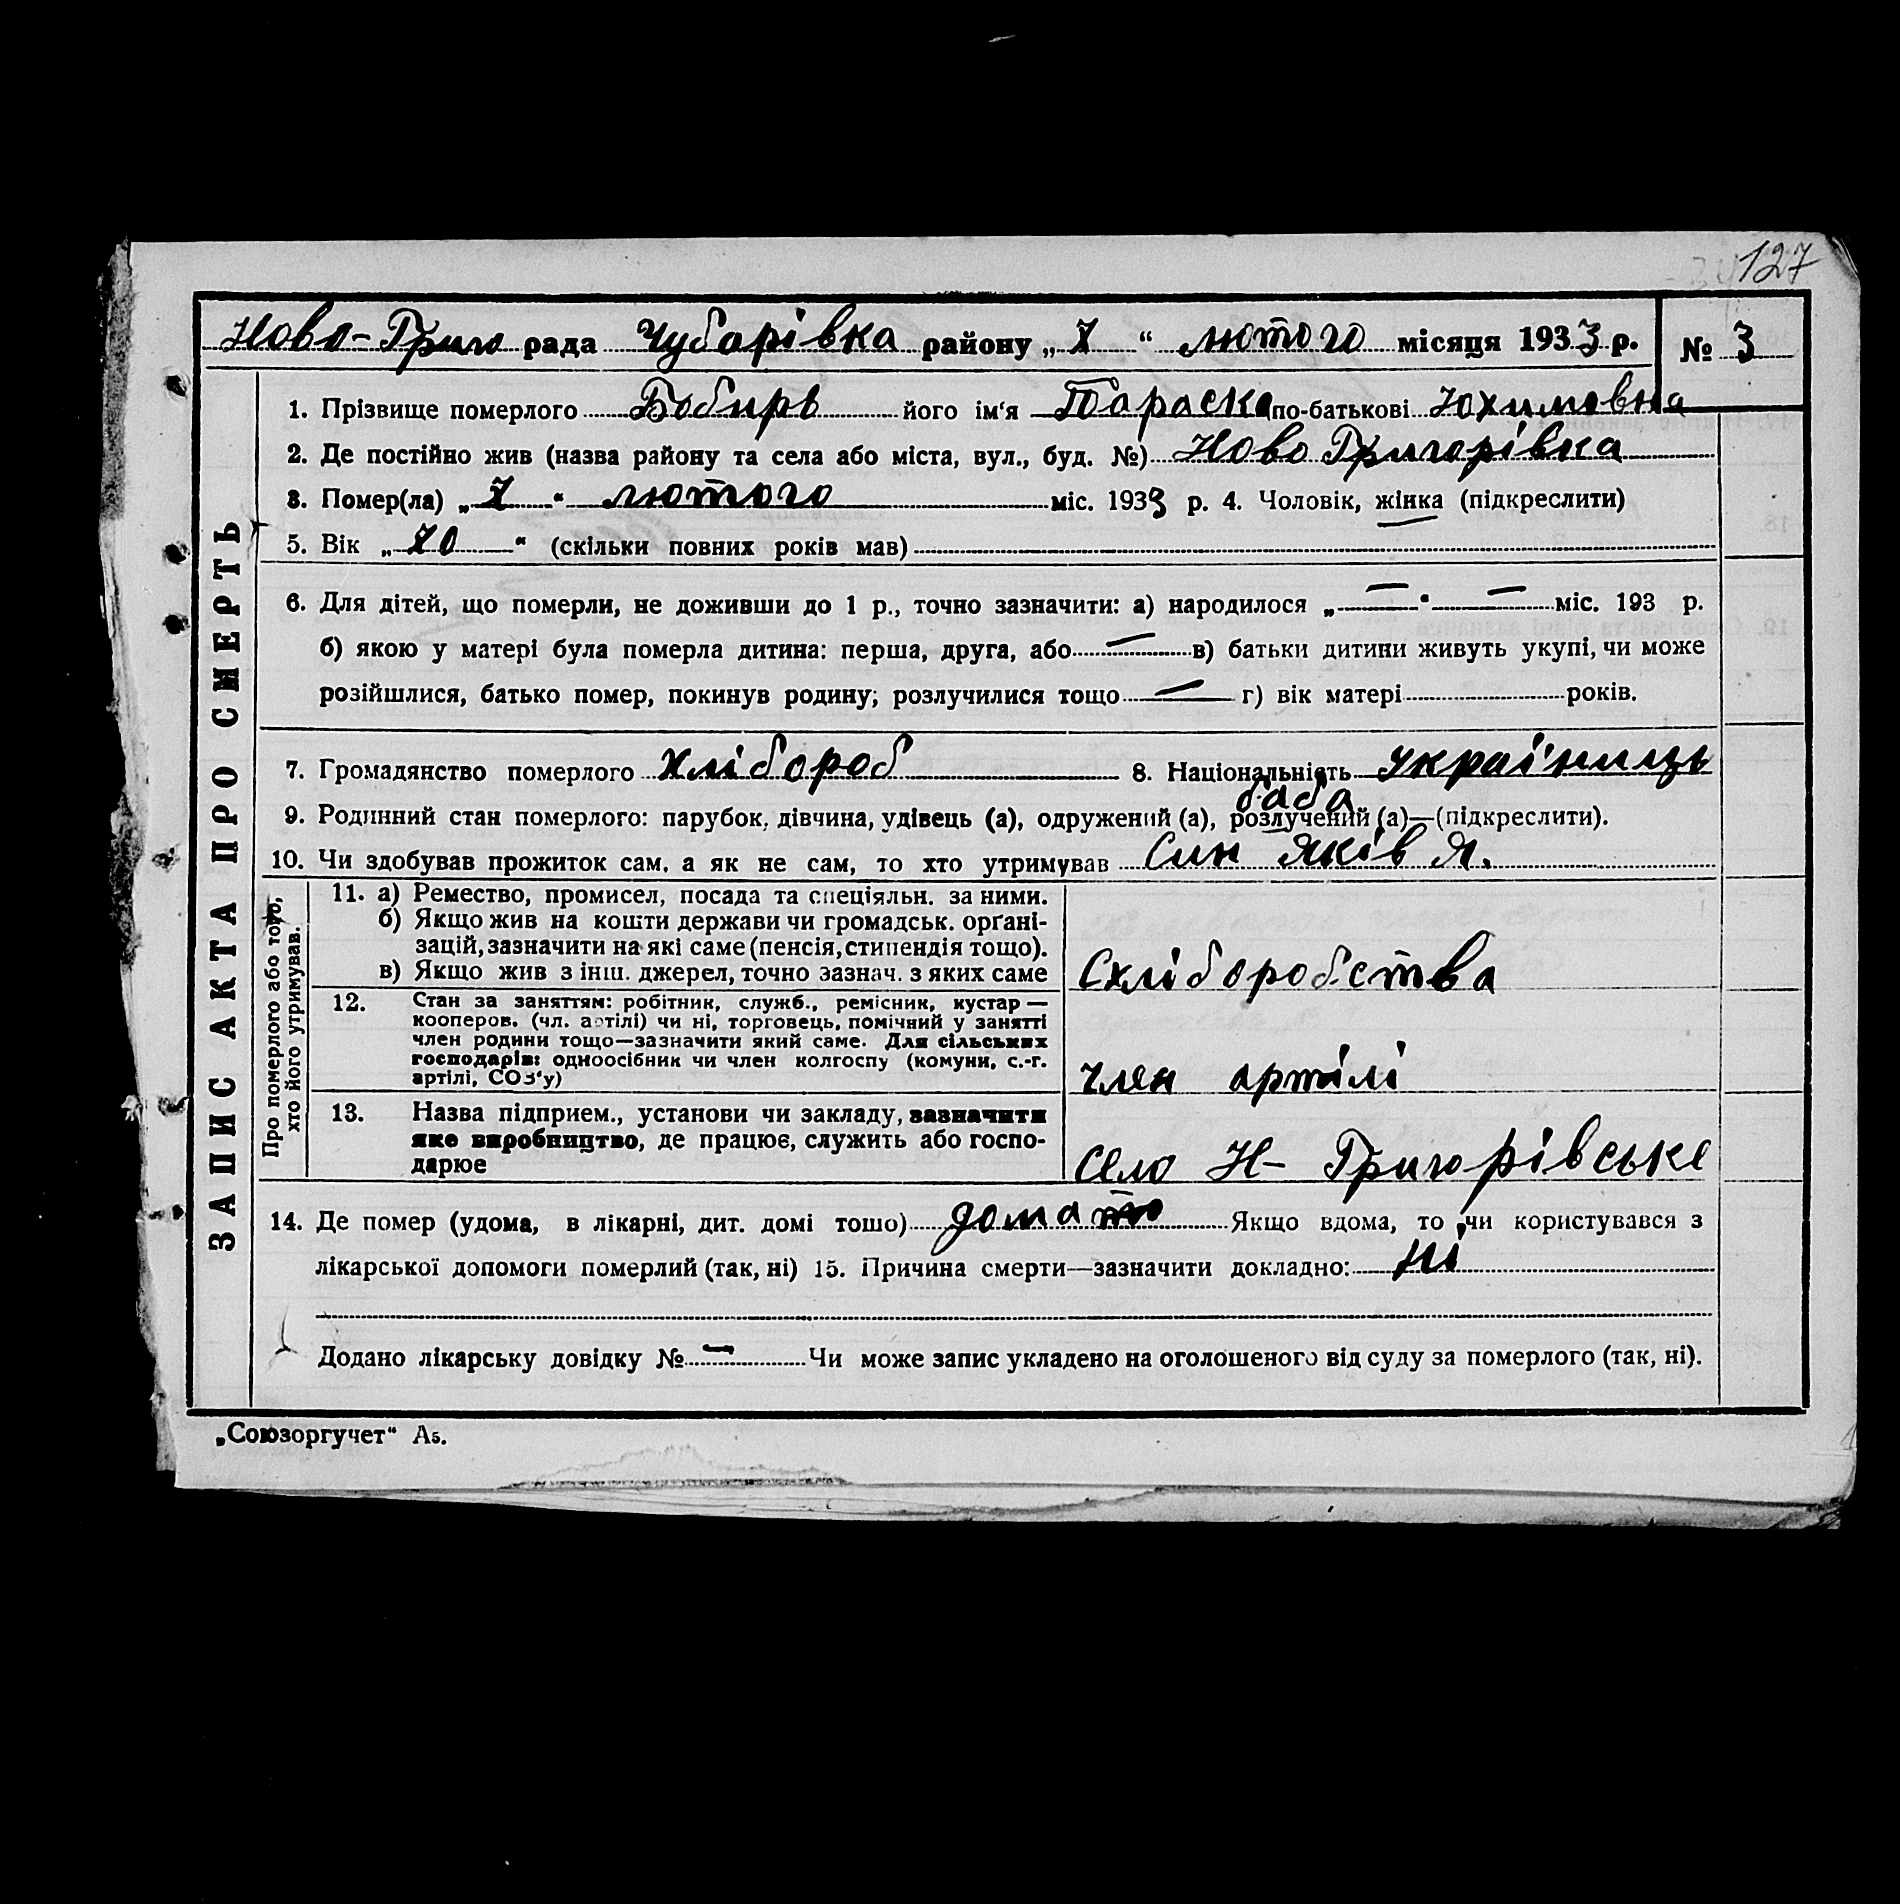 127
Ново-Григо рада Чубарівка району „ 7 “ лютого місяця 1933 р. № 3
1. Прізвище померлого Бобирь його ім‘я Параска по-батькові Юхимовна
2. Де постійно жив (назва району та села або міста, вул., буд. №) Ново Григорівка
3. Помер(ла) „ 7 “ лютого міс. 1933 р. 4. Чоловік, жінка (підкреслити)
5. Вік „ 70 “ (скільки повних років мав)
6. Для дітей, що померли, не доживши до 1 р., точно зазначити: а) народилося „ — “ — міс. 193 р.
б) якою у матері була померла дитина: перша, друга, або — в) батьки дитини живуть укупі, чи може
розійшлися, батько помер, покинув родину; розлучилися тощо — г) вік матері років.
7. Громадянство померлого хлібороб 8. Національність україниць
баба
9. Родинний стан померлого: парубок, дівчина, удівець (а), одружений (а), розлучений (а)—(підкреслити).
10. Чи здобував прожиток сам, а як не сам, то хто утримував Син Яків Я.
ЗАПИС АКТА ПРО СМЕРТЬ
Про померлого або того,
хто його утримував.
11. а) Ремество, промисел, посада та спеціяльн. за ними.
б) Якщо жив на кошти держави чи громадськ. орґані-
зацій, зазначити на які саме (пенсія, стипендія тощо).
в) Якщо жив з інш. джерел, точно зазнач. з яких саме
Схліборобства
12. Стан за заняттям: робітник, служб., ремісник, кустар —
кооперов. (чл. артілі) чи ні, торговець, помічний у занятті
член родини тощо—зазначити який саме. Для сільських
господарів: одноосібник чи член колгоспу (комуни, с.-г.
артілі, СОЗ‘у)
член артілі
13. Назва підприєм., установи чи закладу, зазначити
яке виробництво, де працює, служить або госпо-
дарює
село Н- Григорівське
14. Де помер (удома, в лікарні, дит. домі тощо) дома Якщо вдома, то чи користувався з
лікарської допомоги померлий (так, ні) 15. Причина смерти—зазначити докладно: ні
Додано лікарську довідку № — Чи може запис укладено на оголошеного від суду за померлого (так, ні).
„Союзоргучет“ А5.